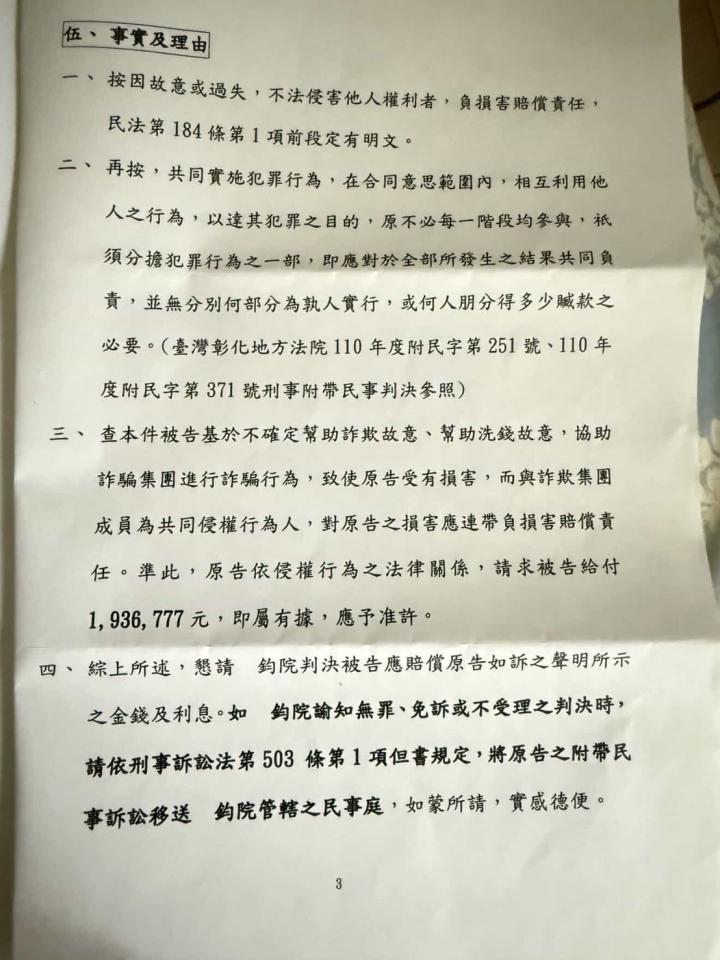 伍、事實及理由
一、按因故意或過失，不法侵害他人權利者，負損害賠償責任，
民法第184條第1項前段定有明文。
二、再按，共同實施犯罪行為，在合同意思範圍內，相互利用他
人之行為，以達其犯罪之目的，原不必每一階段均參與，祇
須分擔犯罪行為之一部，即應對於全部所發生之結果共同負
責，並無分別何部分為孰人實行，或何人朋分得多少贓款之
必要。(臺灣彰化地方法院110年度附民字第251號、110年
度附民字第371號刑事附帶民事判決參照)
三、查本件被告基於不確定幫助詐欺故意、幫助洗錢故意，協助
詐騙集團進行詐騙行為，致使原告受有損害，而與詐欺集團
成員為共同侵權行為人，對原告之損害應連帶負損害賠償責
任。準此，原告依侵權行為之法律關係，請求被告給付
1,936,777元，即屬有據，應予准許。
四、綜上所述，懇請　鈞院判決被告應賠償原告如訴之聲明所示
之金錢及利息。如　鈞院諭知無罪、免訴或不受理之判決時，
請依刑事訴訟法第503條第1項但書規定，將原告之附帶民
事訴訟移送　鈞院管轄之民事庭，如蒙所請，實感德便。
3